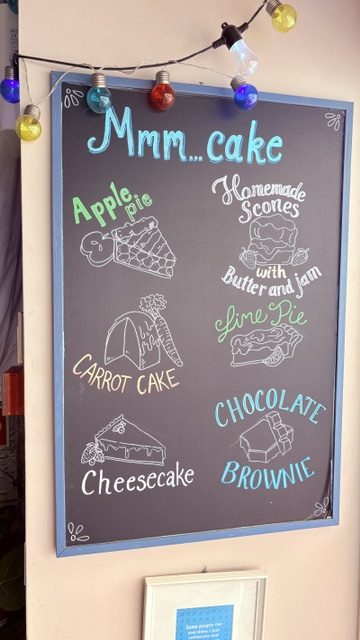 Mmm...cake
Apple pie
Homemade
Scones
with
Butter and jam
CARROT CAKE
Lime Pie
Cheesecake
CHOCOLATE
BROWNIE